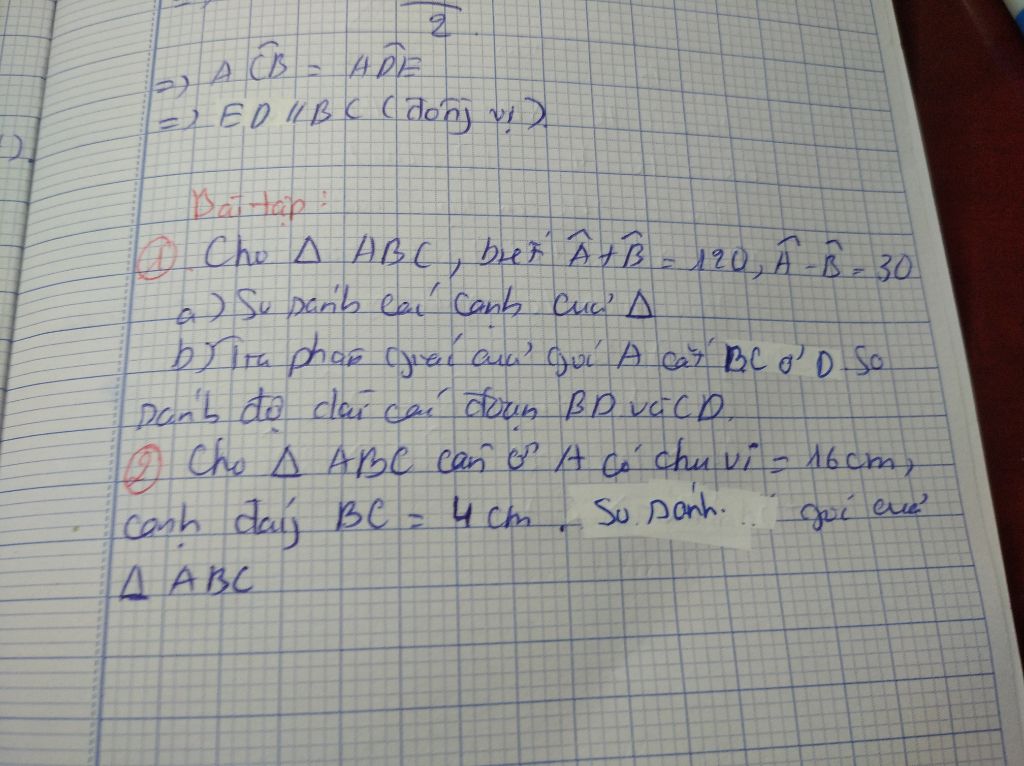 2
=) AĈB = AD̂E
=) ED // BC (đồng vị)
Bài tập:
① Cho Δ ABC, biết Â + B̂ = 120, Â - B̂ = 30
a) So sánh các cạnh của Δ
b) Tia phân giác của góc A cắt BC ở D. So
sánh độ dài các đoạn BD và CD.
② Cho Δ ABC cân ở A có chu vi = 16 cm,
cạnh đáy BC = 4 cm. So sánh. góc của
Δ ABC